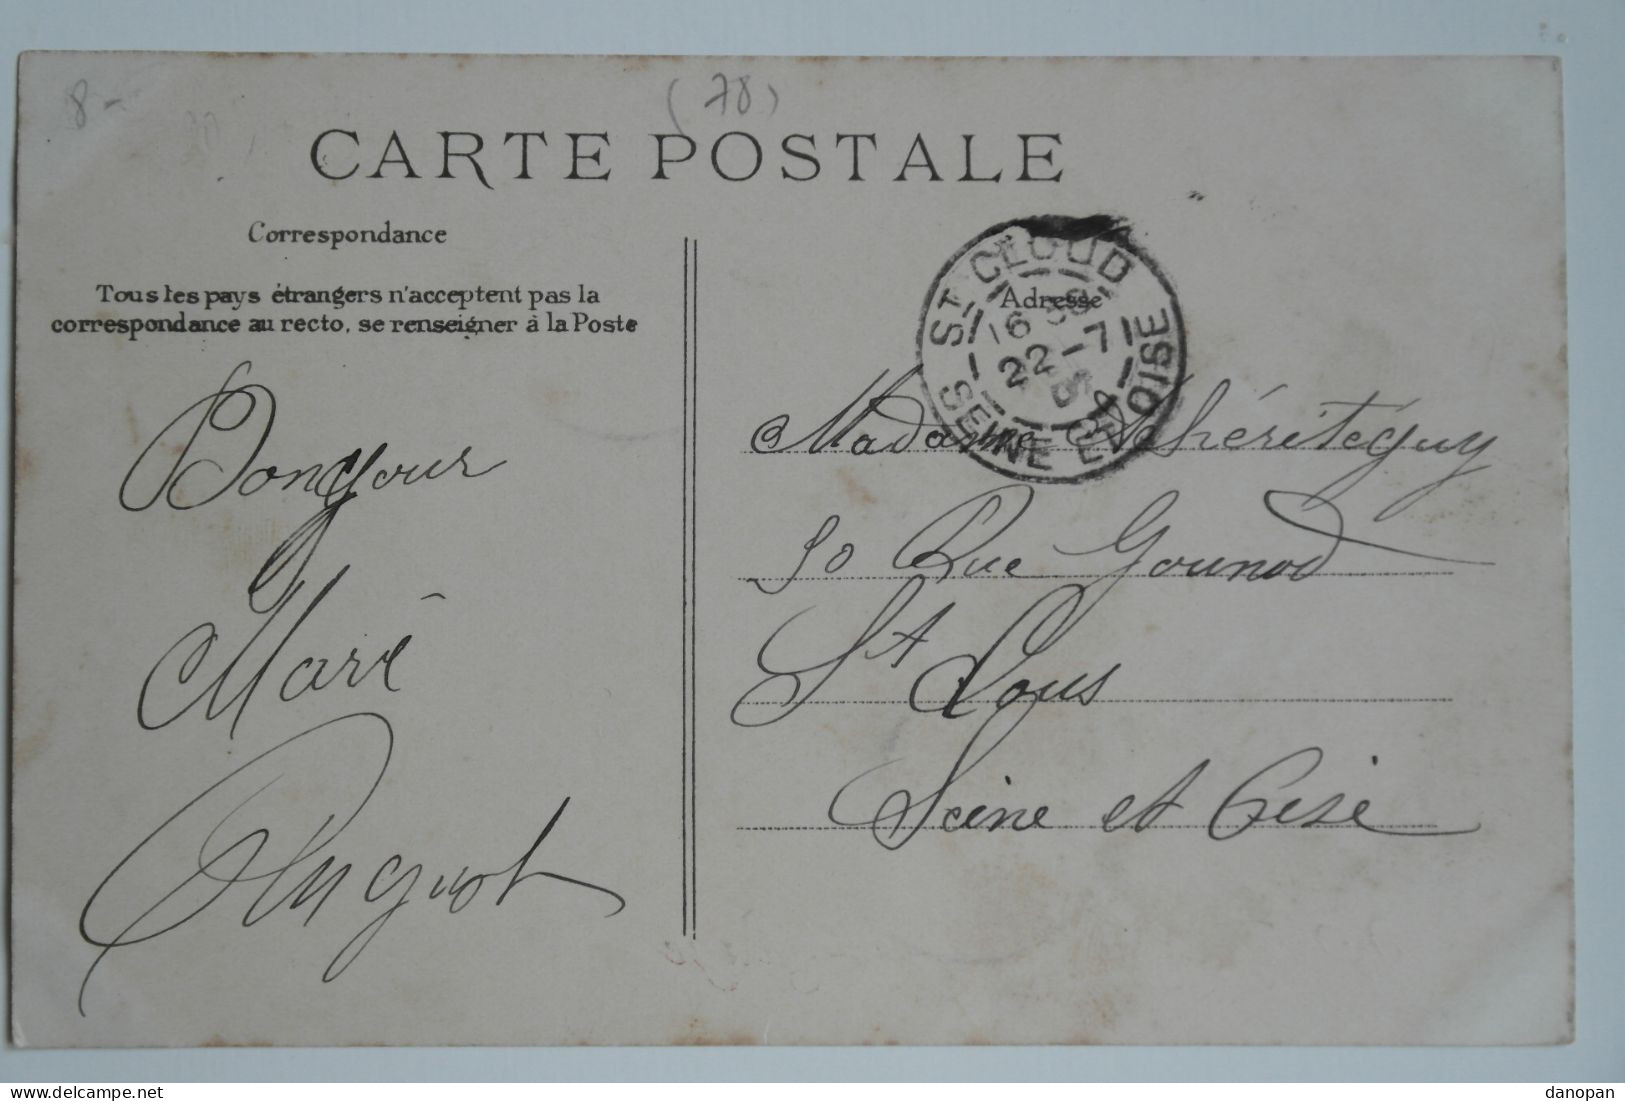 8-
(78)
CARTE POSTALE
Correspondance
Tous les pays étrangers n'acceptent pas la
correspondance au recto, se renseigner à la Poste
Bonjour
Mari
August
Adresse
ST CLOUD
16
22-7
SEINE ET OISE
Madame Lhéritéguy
50 Rue Gounod
St Clous
Seine et Oise
danopan